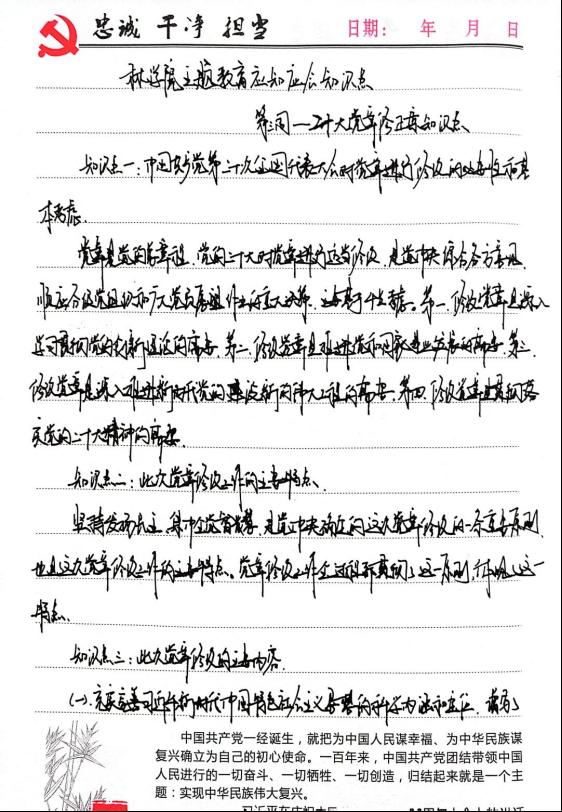 忠诚 干净 担当
日期: 年 月 日
林学院主题教育应知应会知识点
第三周一二十大党章修正案知识点
知识点一:中国共产党第二十次全国代表大会对党章进行修改的必要性和基
本考虑.
党章是党的总章程,党的二十大对党章进行适当修改,是党中央综合各方意见
顺应各级党组织和广大党员愿望作出的重大决策,主要基于考虑。第一,修改党章是深入
学习贯彻党的创新理论的需要.第二,修改党章是推进党和国家事业发展的需要.第三,
修改党章是深入推进新时代党的建设新的伟大工程的需要.第四,修改党章是贯彻落
实党的二十大精神的需要.
知识点二:此次党章修改工作的主要特点.
坚持发扬民主、集中全党智慧,是党中央确定的这次党章修改的一条重要原则
也是这次党章修改工作的主要特点。党章修改工作全过程都贯彻了这一原则,体现了这一
特点.
知识点三:此次党章修改的主要内容.
(一).充实完善习近平新时代中国特色社会主义思想的科学内涵和定位,
中国共产党一经诞生,就把为中国人民谋幸福、为中华民族谋
复兴确立为自己的初心使命。一百年来,中国共产党团结带领中国
人民进行的一切奋斗、一切牺牲、一切创造,归结起来就是一个主
题:实现中华民族伟大复兴。